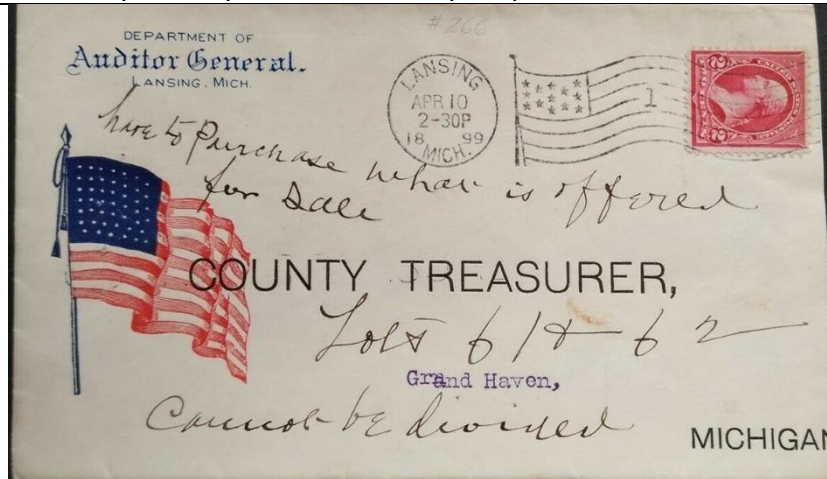 #266
DEPARTMENT OF
Auditor General.
LANSING, MICH.
LANSING
APR 10
2-30P
18 99
MICH.
1
UNITED STATES POSTAGE
2 2
have to Purchase what is offered
for Sale
COUNTY TREASURER,
Lots 61 & 62
Grand Haven,
Cannot be divided
MICHIGAN